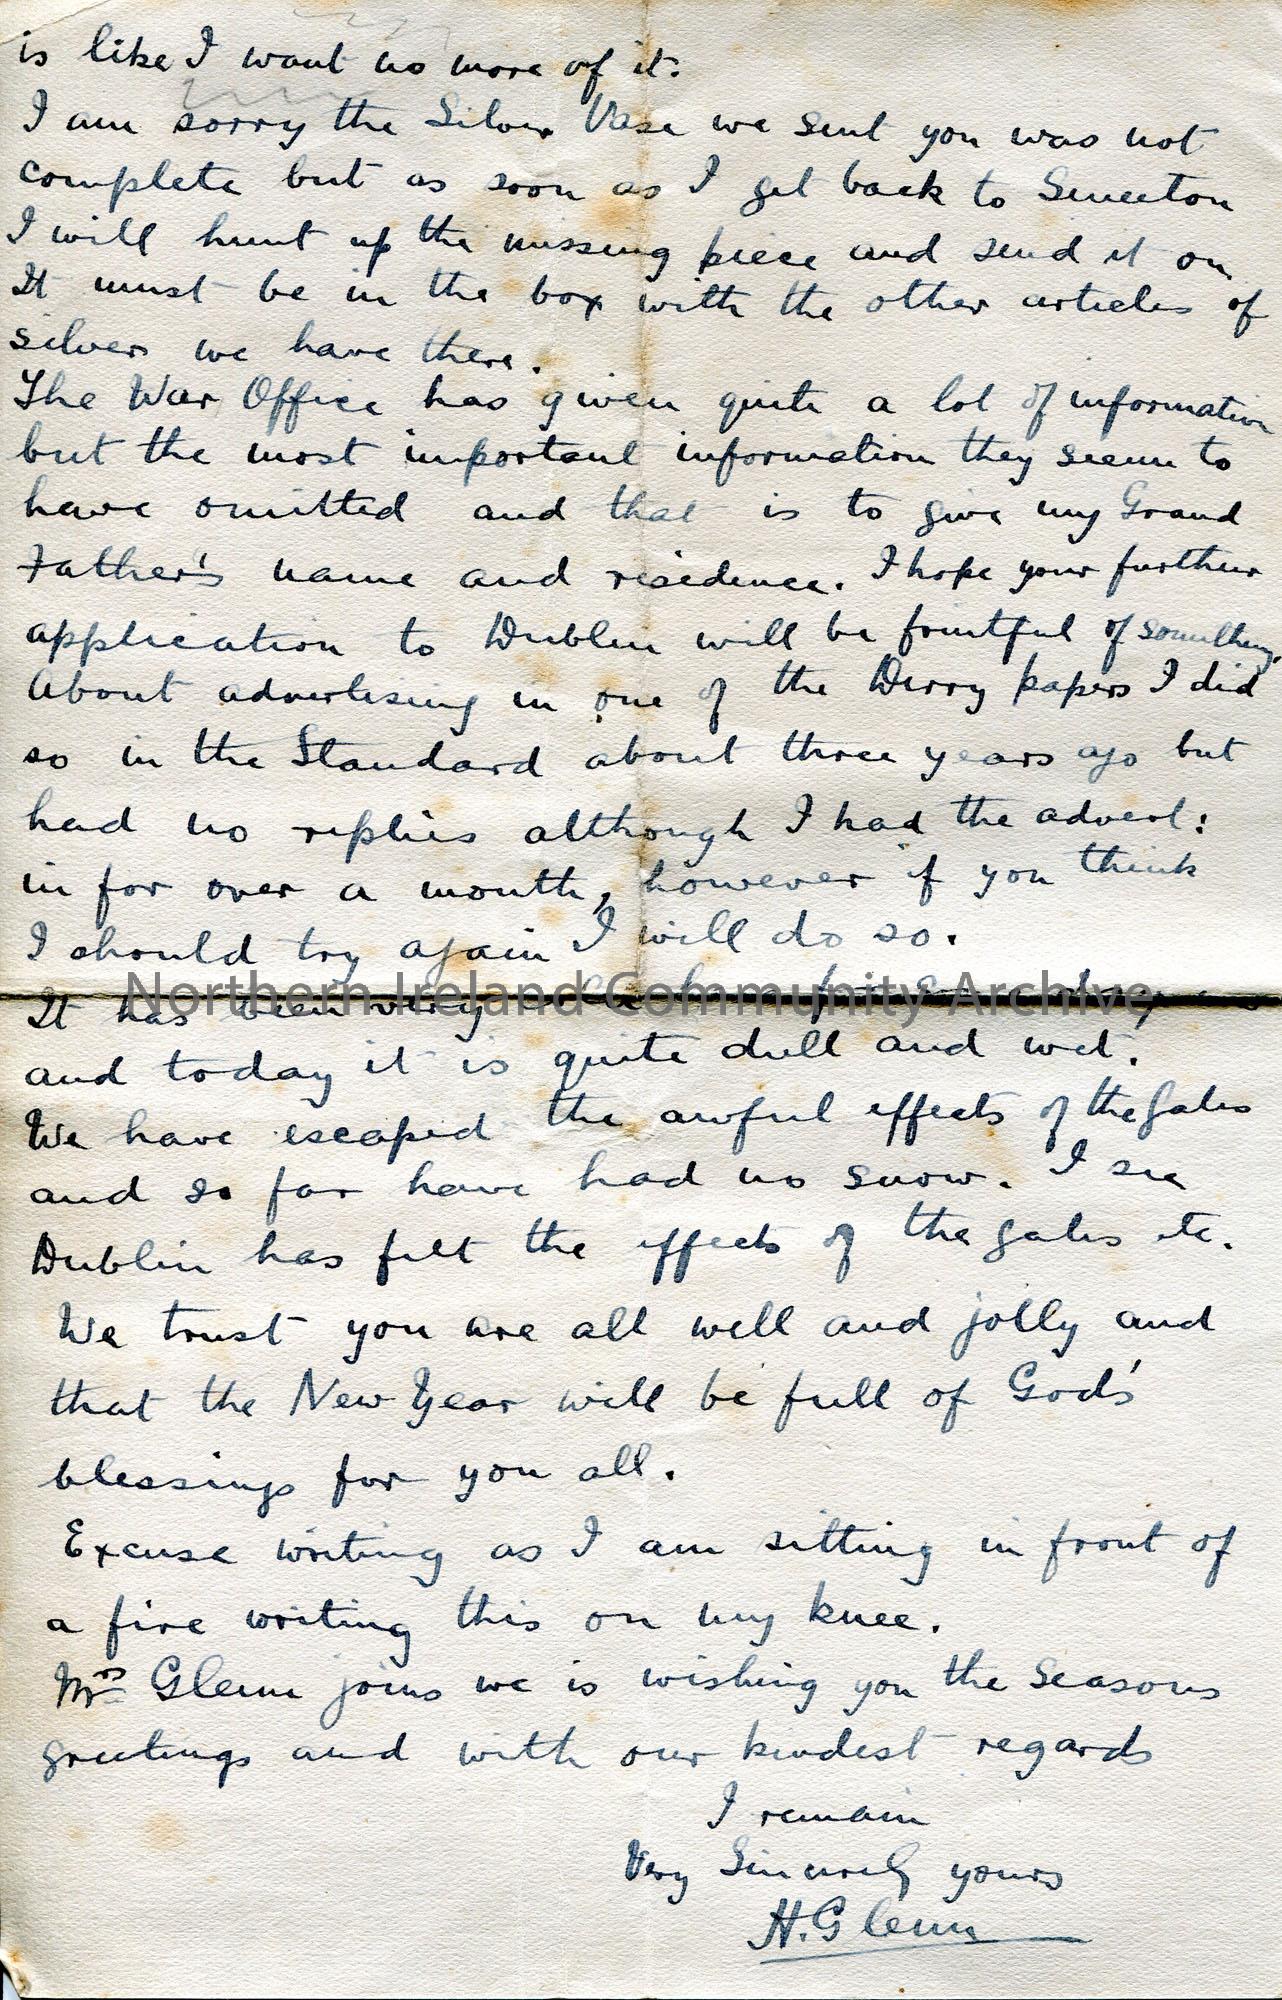 is like I want no more of it.
I am sorry the Silver Vase we sent you was not
complete but as soon as I get back to Smeeton
I will hunt up the missing piece and send it on.
It must be in the box with the other articles of
silver we have there.
The War Office has given quite a lot of information
but the most important information they seem to
have omitted and that is to give my Grand
Father's name and residence. I hope your further
application to Dublin will be fruitful of something.
About advertising in one of the Derry papers I did
so in the Standard about three years ago but
had no replies although I had the advert:
in for over a month, however if you think
I should try again I will do so.
Northern Ireland Community Archive
It has been very
and today it is quite dull and wet.
We have escaped the awful effects of the gales
and so far have had no snow. I see
Dublin has felt the effects of the gales etc.
We trust you are all well and jolly and
that the New Year will be full of God's
blessings for you all.
Excuse writing as I am sitting in front of
a fire writing this on my knee.
Mrs Glenn joins me is wishing you the Seasons
greetings and with our kindest regards
I remain
Very Sincerely yours
H. Glenn